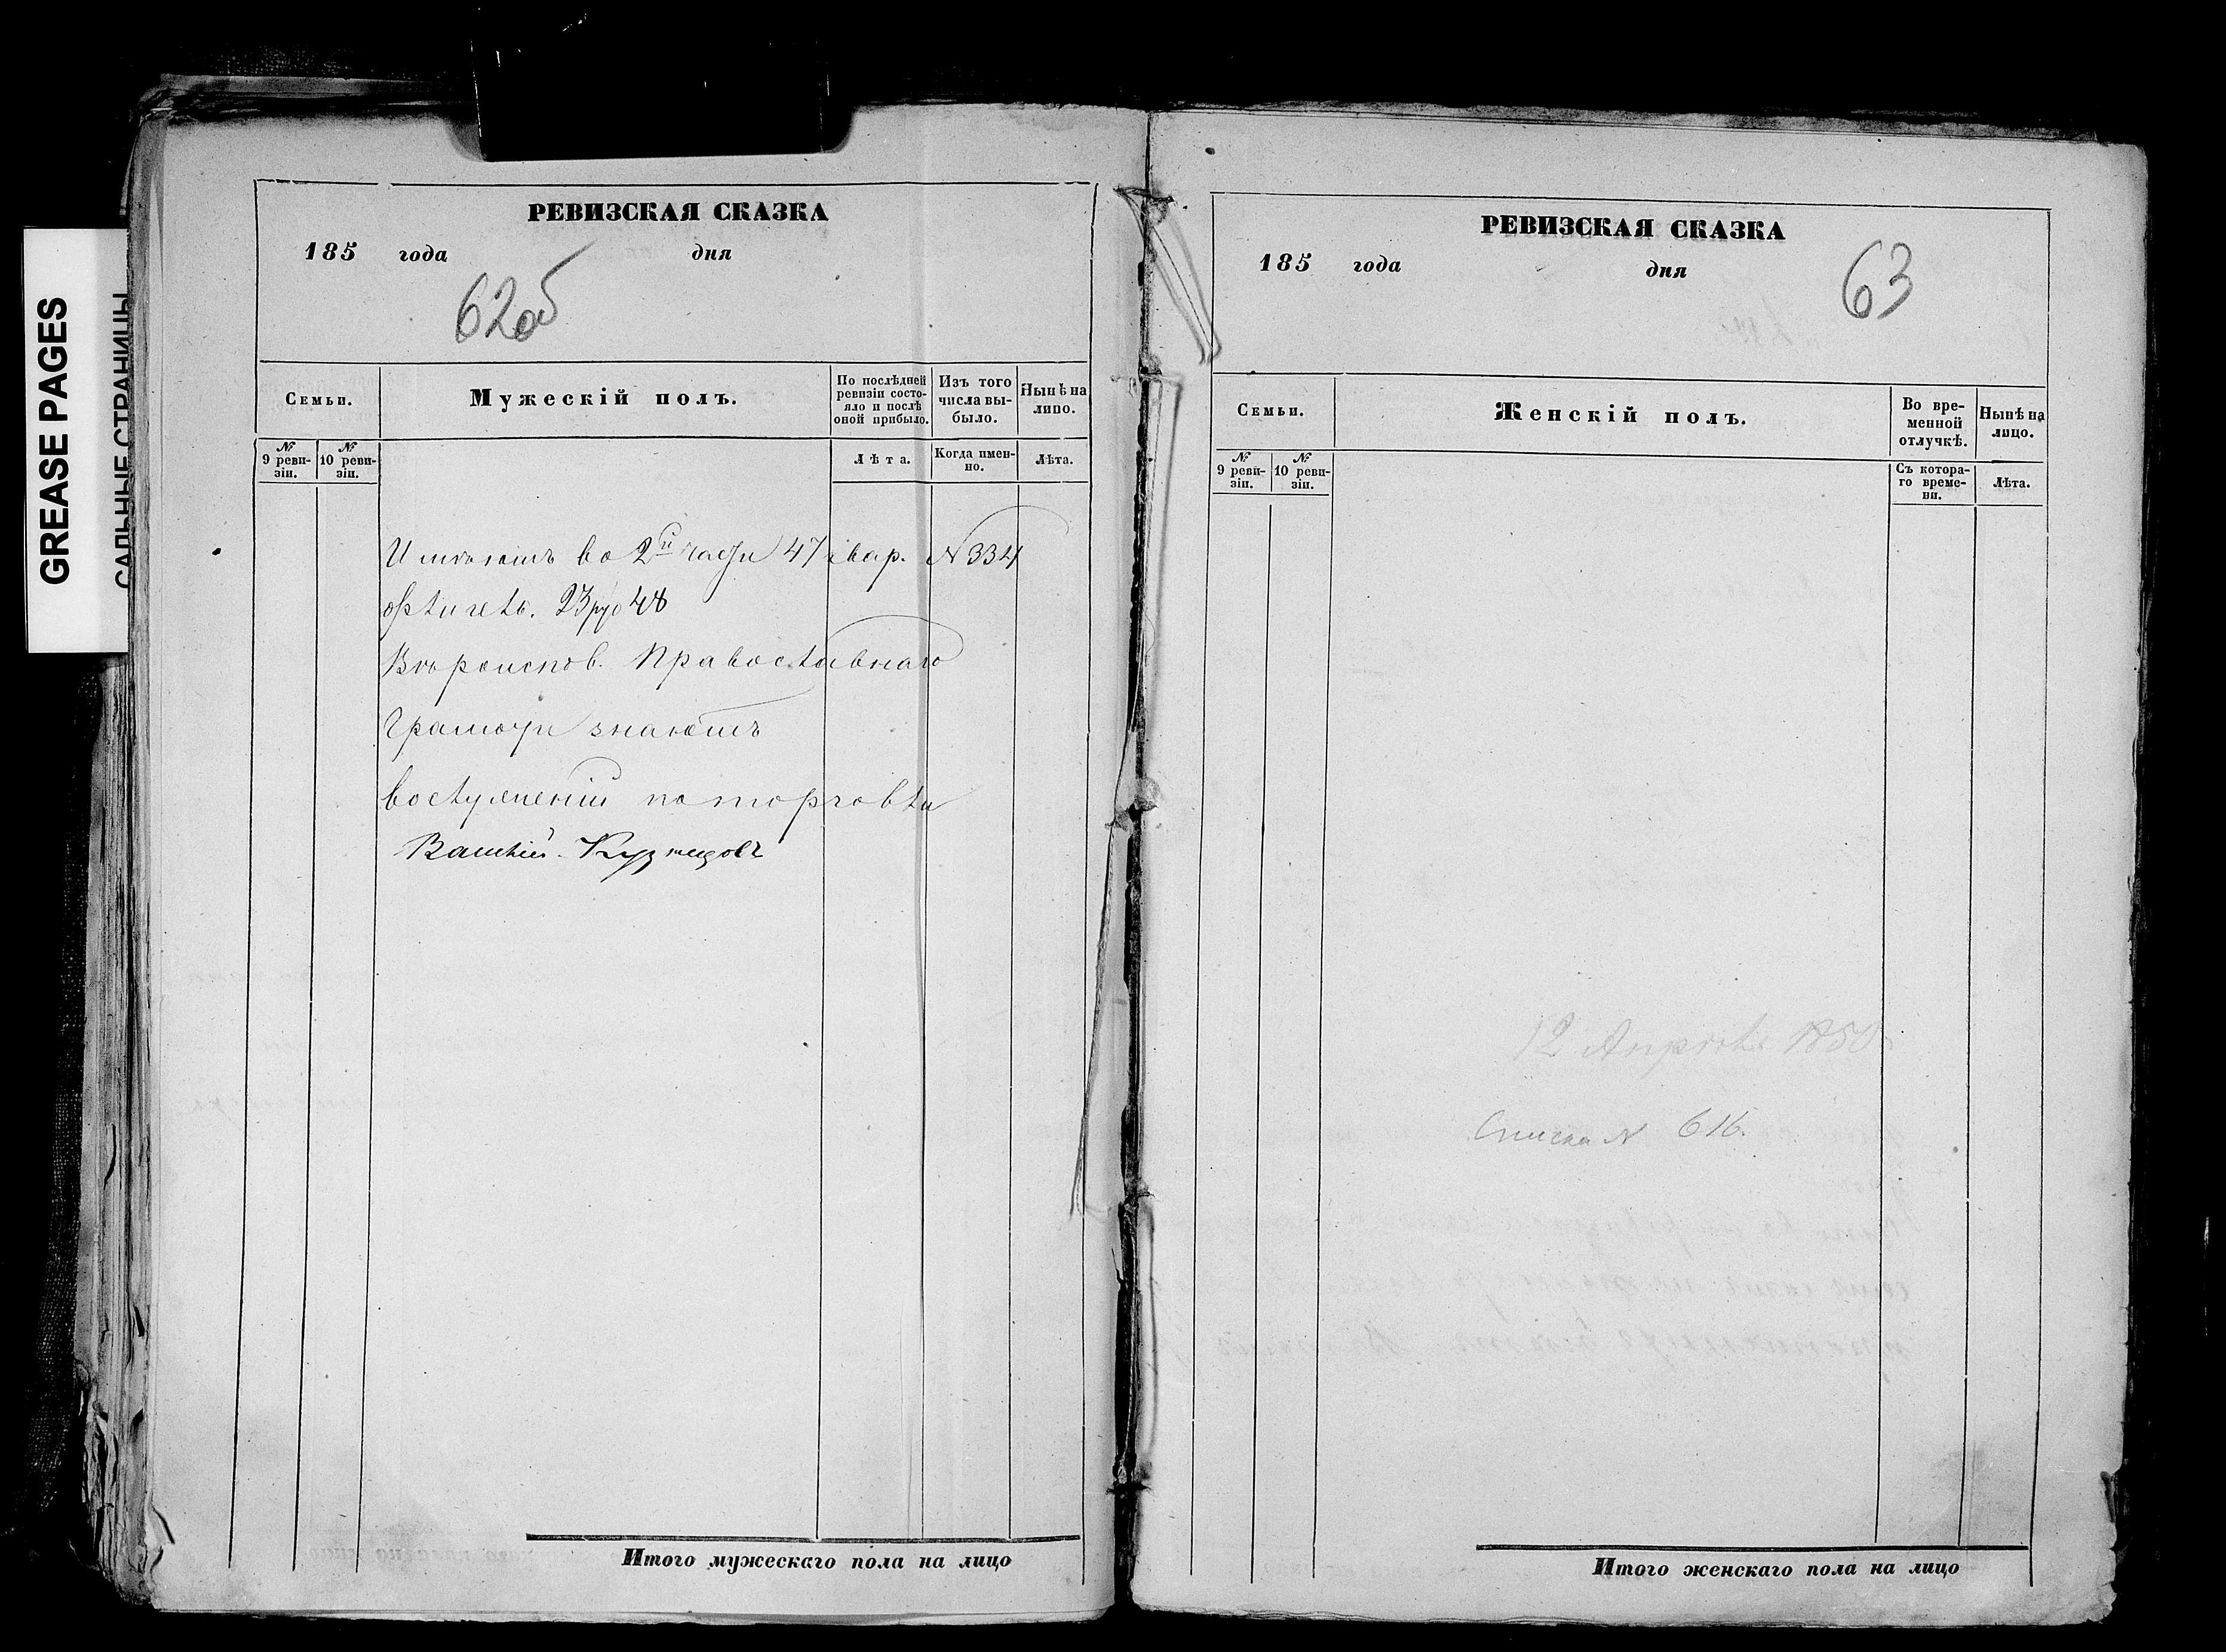 GREASE PAGES
САЛЬНЫЕ СТРАНИЦЫ
РЕВИЗСКАЯ СКАЗКА
185 года дня
62об
Семьи.
Мужескій полъ.
По послѣдней ревизіи состояло и послѣ оной прибыло.
Изъ того числа выбыло.
Нынѣ на лицо.
№ 9 ревизіи.
№ 10 ревизіи.
Лѣта.
Когда именно.
Лѣта.
Имѣютъ во 2й части 47 квар. N 334
23 ру 48
Вѣроиспов. Православнаго
Грамоти знаютъ
по торговли
Василий Кузнецовъ
Итого мужескаго пола на лицо
РЕВИЗСКАЯ СКАЗКА
185 года дня
63
Семьи.
Женскій полъ.
Во временной отлучкѣ.
Нынѣ на лицо.
№ 9 ревизіи.
№ 10 ревизіи.
Съ котораго времени.
Лѣта.
12 Апрѣля 1850
Списка N 616.
Итого женскаго пола на лицо